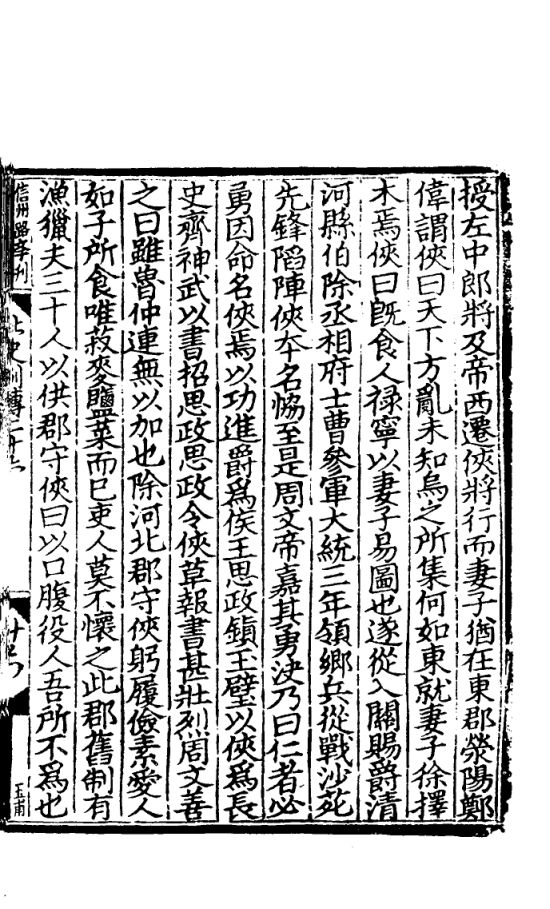 授左中郎將及帝西遷俠將行而妻子猶在東郡滎陽鄭
偉謂俠曰天下方亂未知烏之所集何如東就妻子徐擇
木焉俠曰旣食人禄寧以妻子易圖也遂從入關賜爵清
河縣伯除丞相府士曹參軍大統三年領鄉兵從戰沙苑
先鋒陷陣俠夲名協至是周文帝嘉其勇决乃曰仁者必
勇因命名俠焉以功進爵爲侯王思政鎮玉壁以俠爲長
史齊神武以書招思政思政令俠草報書甚壯烈周文善
之曰雖魯仲連無以加也除河北郡守俠躬履儉素愛人
如子所食唯菽麥鹽菜而已吏人莫不懷之此郡舊制有
漁獵夫三十人以供郡守俠曰以口腹役人吾所不爲也
信州路學刊
北史列傳二十六
玉甫